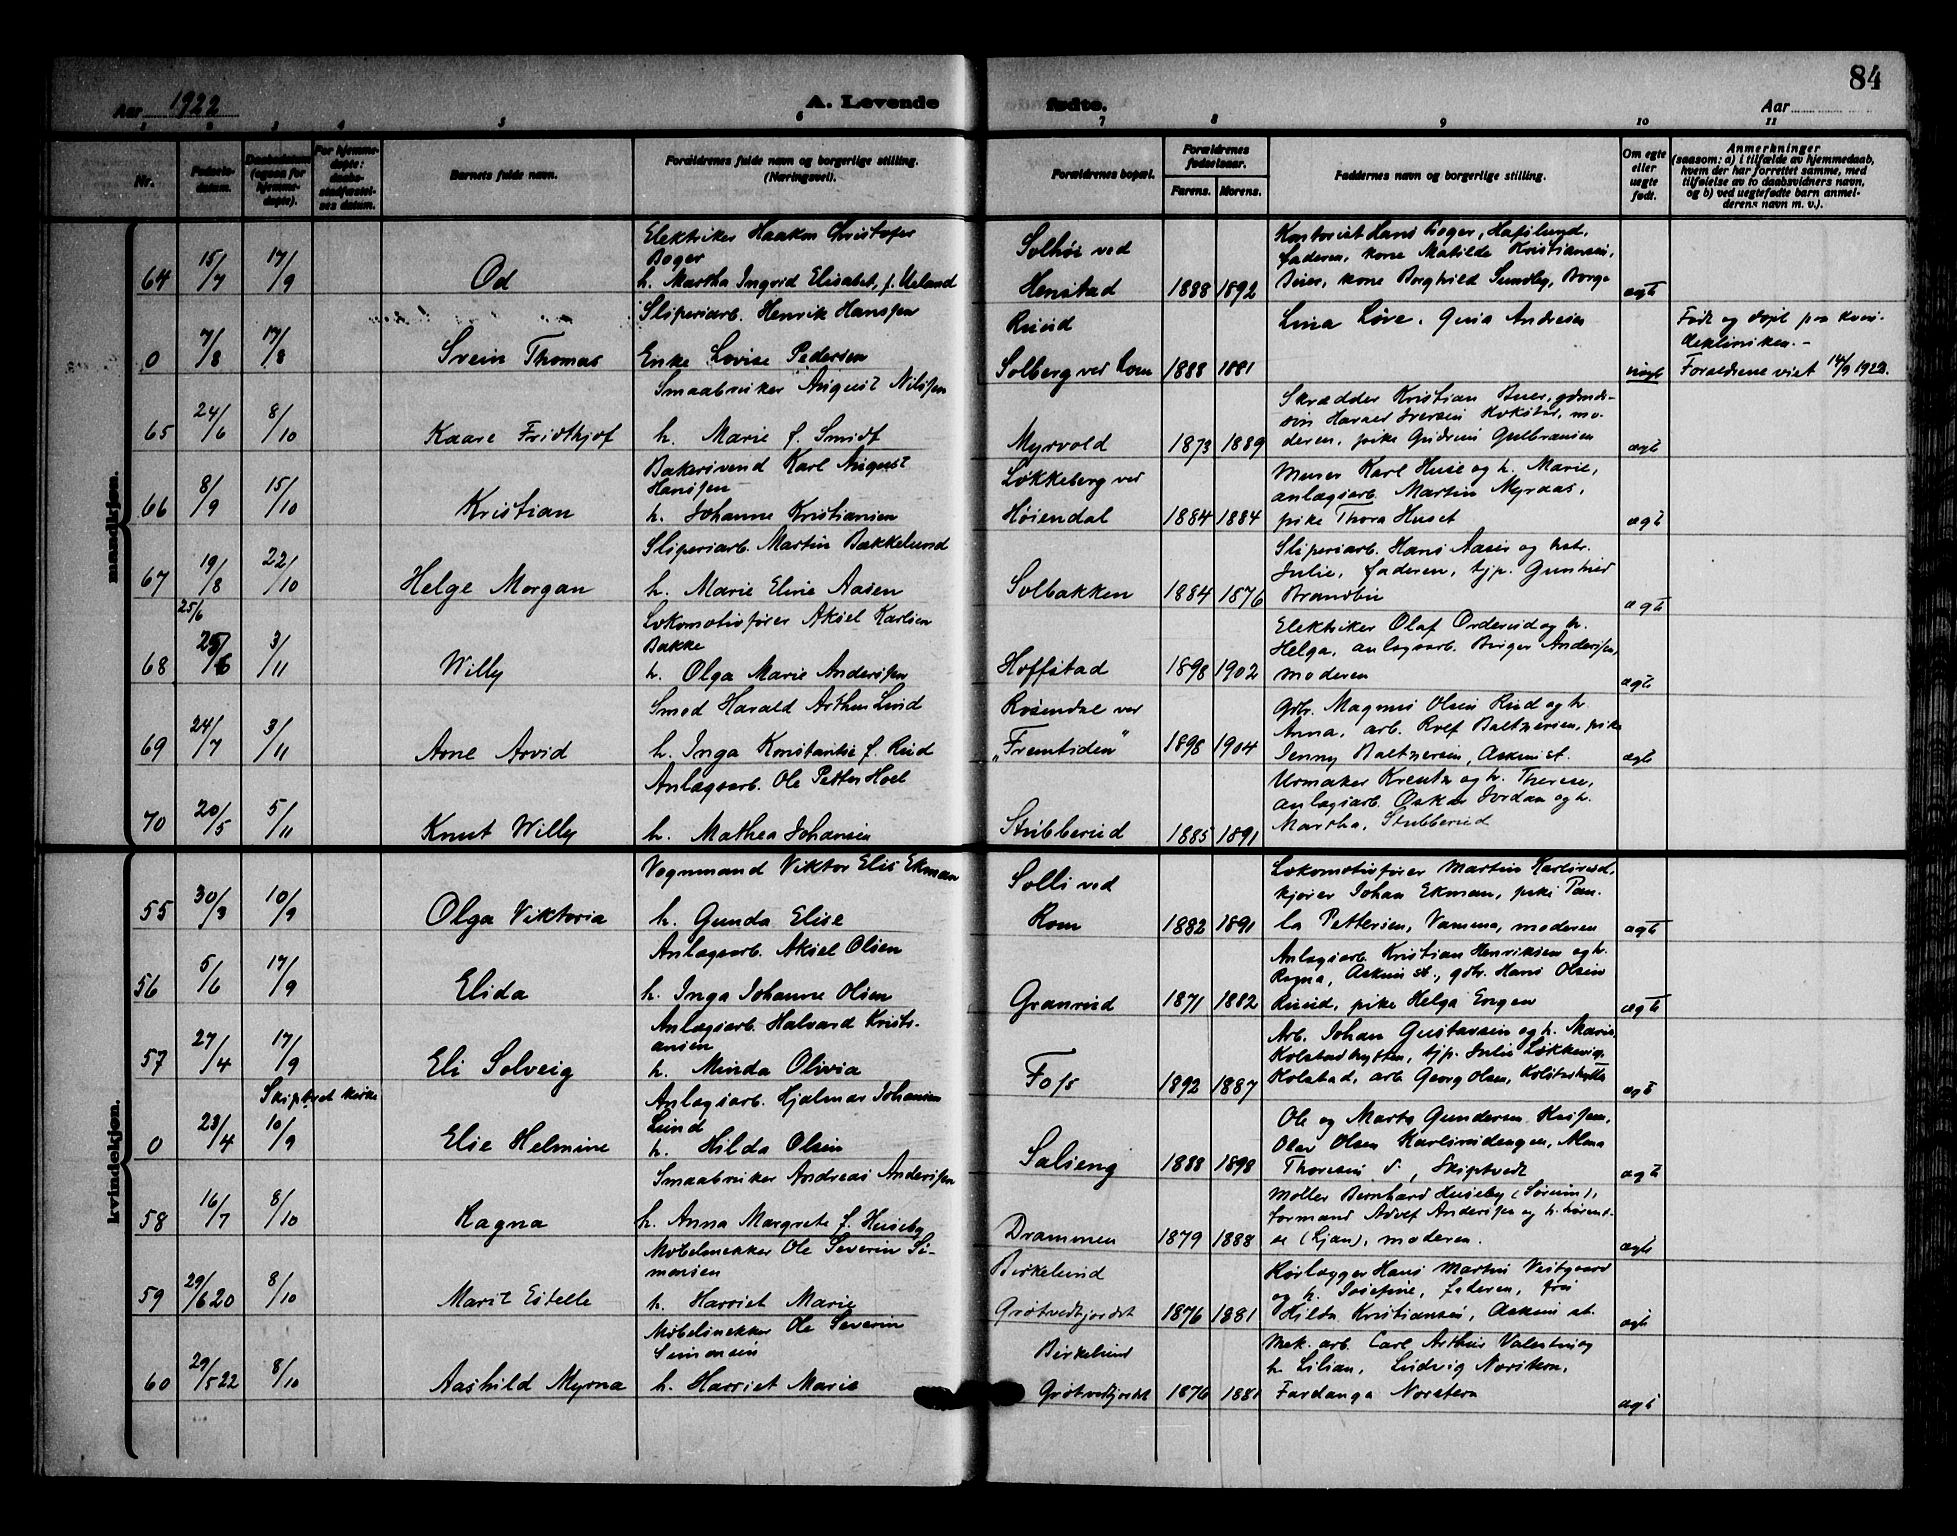 84
Aar 1922
A. Levende
fødte.
Aar
1 2 3 4 5 6 7 8 9 10 11
Nr.
Fødsels-
datum.
Daabsdatum
(ogsaa for
hjemme-
døpte).
For hjemme-
døpte:
daabs-
stadfæstel-
ses datum.
Barnets fulde navn.
Forældrenes fulde navn og borgerlige stilling.
(Næringsvei).
Forældrenes bopæl.
Forældrenes
fødselsaar.
Farens. Morens.
Faddernes navn og borgerlige stilling.
Om egte
eller
uegte
født.
Anmerkninger
(saasom: a) i tilfælde av hjemmedaab,
hvem der har forrettet samme, med
tilføielse av to daabsvidners navn,
og b) ved uegtefødte barn anmel-
derens navn m. v.).
mandkjøn.
64 15/7 17/9 Od
Elektriker Haakon Christofer
Boger
h. Martha Ingrid Elisabet, f. Ueland
Solhøi ved
Henstad
1888 1892
Kontorist Hans Boger, Hafslund,
faderen, kone Matilde Kristiansen,
kone Borghild Sundby, Borge
ægt
0 7/8 17/8 Svein Thomas
Sliperiarb. Henrik Hansen
Enke Lovise Pedersen
Ruud
Solberg ved Rom
1888 1881
Lina Løve, Gina Andresen
uægt
Født og døpt paa Kvin-
deklinikken. -
Forældrene viet 14/9 1922.
65 24/6 8/10 Kaare Fridthjof
Smaabruker August Nilsen
h. Marie f. Smidt
Myrvold
1873 1889
Skrædder Kristian Buer, gdmd.
søn Harald Iversen Kokstad, mo-
deren, pike Gudrun Gulbransen
ægt
66 8/9 15/10 Kristian
Bakersvend Karl August
Hansen
h. Johanne Kristiansen
Løkkeberg ved
Høiendal
1884 1884
Murer Karl Huse og h. Marie,
anlægsarb. Martin Myraas,
pike Thora Huset
ægt
67 19/8 22/10 Helge Morgan
Sliperiarb. Martin Bækkelund
h. Marie Elvine Aasen
Solbakken
1884 1876
Sliperiarb. Hans Aasen og hstr.
Julie, faderen, tjp. Gunhild
Brandbu
ægt
25/6
68 25/6 3/11 Willy
Lokomotivfører Aksel Karlsen
Bakke
h. Olga Marie Andersen
Hoffstad
1898 1902
Elektriker Olaf Orderud og h.
Helga, anlægsarb. Birger Andersen,
moderen
ægt
69 24/7 3/11 Arne Arvid
Smed Harald Arthur Lund
h. Inga Konstanse f. Rud
Rosendal ved
„Fremtiden“
1898 1904
Gbr. Magnus Olsen Rud og h.
Anna, arb. Rolf Baltzersen, pike
Jenny Baltzersen, Askim st.
ægt
70 20/5 5/11 Knut Willy
Anlægsarb. Ole Petter Hoel
h. Mathea Johansen
Stubberud
1885 1891
Urmaker Kreutz og h. Therese,
anlægsarb. Oskar Jordan og h.
Martha, Stubberud
kvindekjøn.
55 30/3 10/9 Olga Viktoria
Vognmand Viktor Elis Ekman
h. Gunda Elise
Solli ved
Rom
1882 1891
Lokomotivfører Martin Karlsrud,
kjører Johan Ekman, pike Pau-
la Pettersen, Vamma, moderen
ægt
56 5/6 17/9 Elida
Anlægsarb. Aksel Olsen
h. Inga Johanne Olsen
Granrud
1871 1882
Anlægsarb. Kristian Henriksen og h.
Ragna, Askim st., gbr. Hans Olsen
Ruud, pike Helga Engen
ægt
57 27/4 17/9 Eli Solveig
Anlægsarb. Halvard Kristi-
ansen
h. Minda Olivia
Foss
1892 1887
Arb. Johan Gustavsen og h. Marie,
Kolstadhytten, tjp. Julie Løkkevig,
Kolstad, arb. Georg Olsen, Kolstadhytta
ægt
Skiptvet kirke
0 23/4 10/9 Else Helmine
Anlægsarb. Hjalmar Johansen
Lund
h. Hilda Olsen
Salieng
1888 1898
Ole og Marta Gundersen
Olav Olsen Karlsrudengen, Alma
Thoresen, Skiptvedt
ægt
58 16/7 8/10 Ragna
Smaabruker Andreas Andersen
h. Anna Margrete f. Huseby
Drammen
1879 1888
Møller Bernhard Huseby (Sørum),
formand Adolf Andersen og h.
(Ljan), moderen.
ægt
59 29/6 20 8/10 Marit Estelle
Møbelsnekker Ole Severin Si-
monsen
h. Harriet Marie
Birkelund
Grøtvedtjordet
1876 1881
Rørlægger Hans Martin Vestgaard
og h. Josefine, faderen, fru
Hilda Kristiansen, Askim st.
ægt
60 29/5 22 8/10 Aashild Myrna
Møbelsnekker Ole Severin
Simonsen
h. Harriet Marie
Birkelund
Grøtvedtjordet
1876 1881
Mek. arb. Carl Arthur Valentin og
h. Lilian, Ludvig Norstern,
Fardanga Norstern
ægt